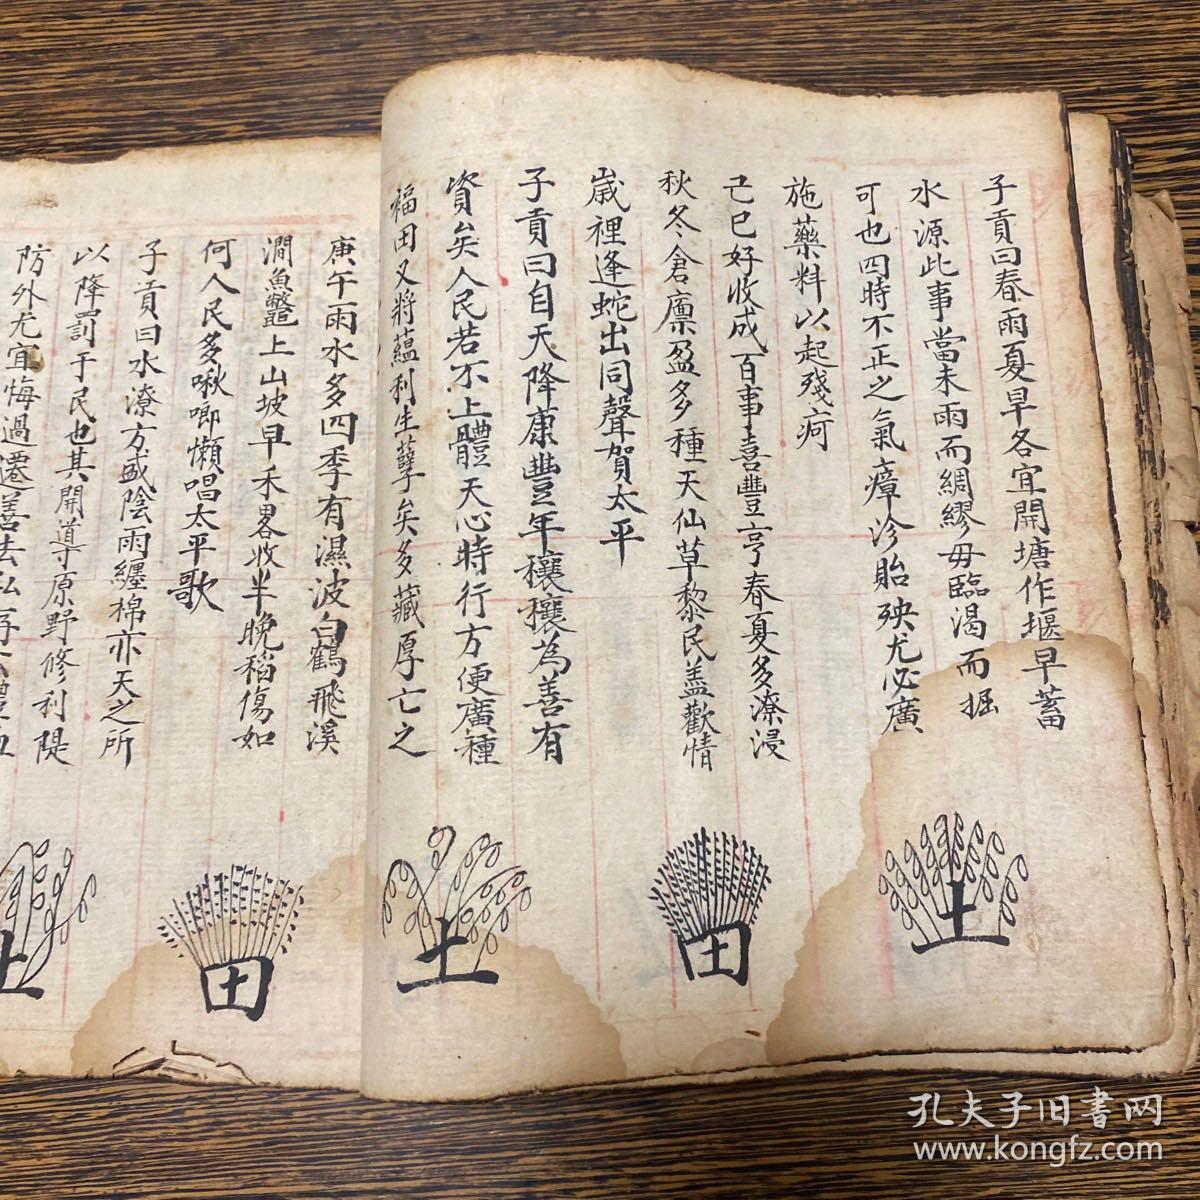 子貢曰春雨夏旱各宜開塘作堰早蓄
水源此事當未雨而綢繆毋臨渴而掘
可也四時不正之氣瘴沴貽殃尤必廣
施藥料以起殘疴
己巳好收成百事喜豐亨春夏多潦浸
秋冬倉廪盈多種天仙草黎民盖歡情
嵗裡逢蛇出同聲賀太平
子貢曰自天降康豐年穰穰為善有
資矣人民若不上體天心時行方便廣種
福田又將蘊利生孽矣多藏厚亡之
庚午雨水多四季有濕波白鶴飛溪
澗魚鼈上山坡早禾畧收半晚稻傷如
何人民多啾唧懶唱太平歌
子貢曰水潦方盛陰雨纏棉亦天之所
以降罰于民也其開導原野修利隄
防外尤宜悔過遷善去私
土
田
土
田
土
孔夫子旧书网
www.kongfz.com